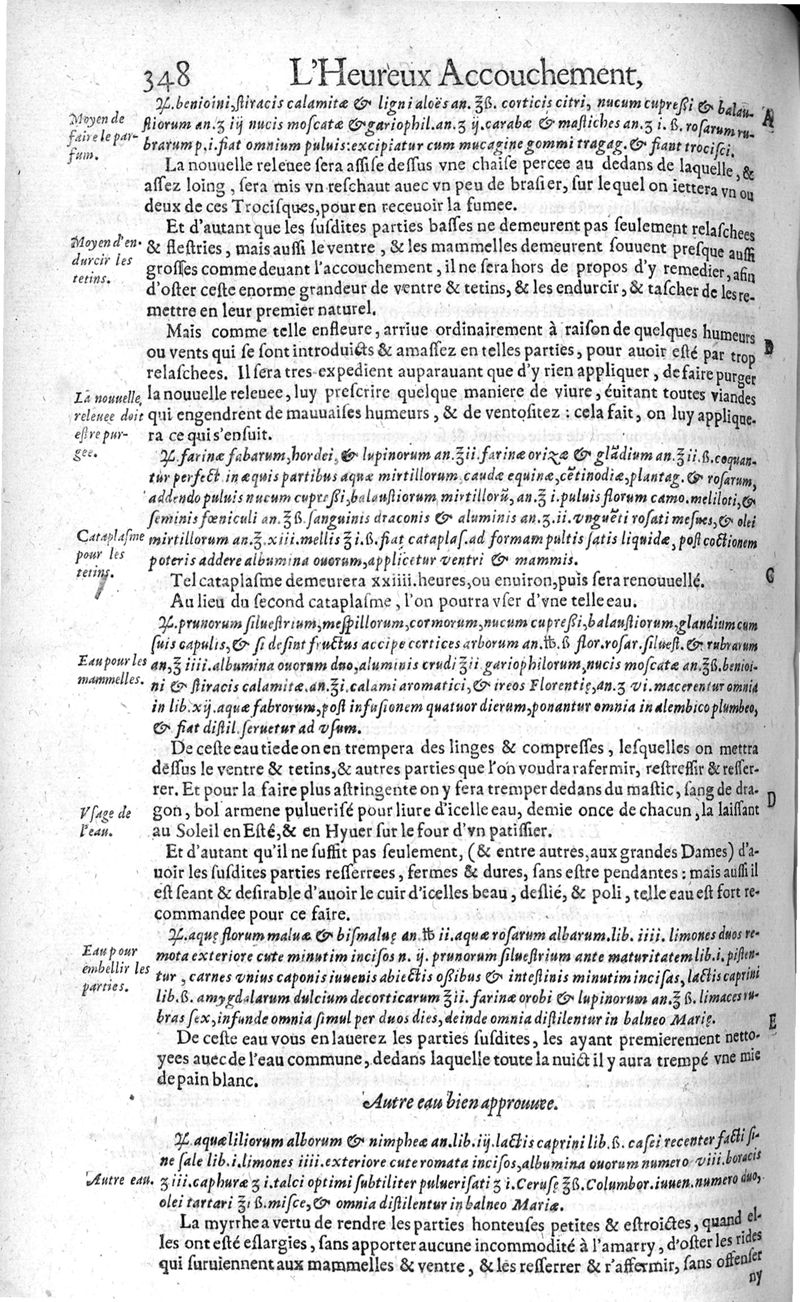 348 L'Heureux Accouchement,
♃. benioini, stiracis calamitæ & ligni aloës an. ʒ̃ß. corticis citri, nucum cupreßi & balau-
Moyen de
faire le par-
fum.
stiorum an. ʒ iij nucis moscatæ & gariophil. an. ʒ ij. carabæ & mastiches an. ʒ i. ß. rosarum ru-
A
brarum p. i. fiat omnium puluis: excipiatur cum mucagine gommi tragag. & fiant trocisci.
La nouuelle releuee sera assise dessus vne chaise percee au dedans de laquelle, &
assez loing, sera mis vn reschaut auec vn peu de brasier, sur lequel on iettera vn ou
deux de ces Trocisques, pour en receuoir la fumee.
Et d'autant que les susdites parties basses ne demeurent pas seulement relaschees
Moyen d'en-
durcir les
tetins.
& flestries, mais aussi le ventre, & les mammelles demeurent souuent presque aussi
grosses comme deuant l'accouchement, il ne sera hors de propos d'y remedier, afin
d'oster ceste enorme grandeur de ventre & tetins, & les endurcir, & tascher de les re-
mettre en leur premier naturel.
Mais comme telle enfleure, arriue ordinairement à raison de quelques humeurs
ou vents qui se sont introduicts & amassez en telles parties, pour auoir esté par trop
relaschees. Il sera tres-expedient auparauant que d'y rien appliquer, de faire purger
La nouuelle
releuee doit
estre pur-
gee.
la nouuelle releuee, luy prescrire quelque maniere de viure, éuitant toutes viandes
qui engendrent de mauuaises humeurs, & de ventositez : cela fait, on luy applique-
ra ce qui s'ensuit.
♃. farinæ fabarum, hordei, & lupinorum an. ʒ̃ii. farinæ orizæ & glãdium an. ʒ̃ii. ß. coquan-
tur perfect. in æquis partibus aquæ mirtillorum, caudæ equinæ, cẽtinodiæ, plantag. & rosarum,
addendo puluis nucum cupreßi, balaustiorum, mirtillorũ, an. ʒ̃ i. puluis florum camo. meliloti, &
seminis fœniculi an. ʒ̃ß. sanguinis draconis & aluminis an. ʒ. ii. vnguẽti rosati mesues, & olei
Cataplasme
pour les
tetins.
mirtillorum an. ʒ̃. xiii. mellis ʒ̃ i. ß. fiat cataplas. ad formam pultis satis liquidæ, post coctionem
poteris addere albumina ouorum, applicetur ventri & mammis.
Tel cataplasme demeurera xxiiii. heures, ou enuiron, puis sera renouuellé.
C
Au lieu du second cataplasme, l'on pourra vser d'vne telle eau.
♃. prunorum siluestrium, mespillorum, cormorum, nucum cupreßi, balaustiorum, glandium cum
suis capulis, & si desint fructus accipe cortices arborum an. ℔. ß flor. rosar. siluest. & rubrarum
Eau pour les
mammelles.
an, ʒ̃ iiii. albumina ouorum duo, aluminis crudi ʒ̃ii. gariophilorum, nucis moscatæ an. ʒ̃ß. benioi-
ni & stiracis calamitæ. an. ʒ̃i. calami aromatici, & ireos Florentię, an. ʒ vi. macerentur omnia
in lib. xij. aquæ fabrorum, post infusionem quatuor dierum, ponantur omnia in alembico plumbeo,
& fiat distil. seruetur ad vsum.
De ceste eau tiede on en trempera des linges & compresses, lesquelles on mettra
dessus le ventre & tetins, & autres parties que l'on voudra rafermir, restressir & resser-
rer. Et pour la faire plus astringente on y fera tremper dedans du mastic, sang de dra-
D
Vsage de
l'eau.
gon, bol armene puluerisé pour liure d'icelle eau, demie once de chacun, la laissant
au Soleil en Esté, & en Hyuer sur le four d'vn patissier.
Et d'autant qu'il ne suffit pas seulement, (& entre autres, aux grandes Dames) d'a-
uoir les susdites parties resserrees, fermes & dures, sans estre pendantes : mais aussi il
est seant & desirable d'auoir le cuir d'icelles beau, deslié, & poli, telle eau est fort re-
commandee pour ce faire.
♃. aquę florum maluæ & bismaluę an. ℔ ii. aquæ rosarum albarum. lib. iiii. limones duos re-
Eau pour
embellir les
parties.
mota exteriore cute minutim incisos n. ij. prunorum siluestrium ante maturitatem lib. i. pisten-
tur, carnes vnius caponis iuuenis abiectis oßibus & intestinis minutim incisas, lactis caprini
lib. ß. amygdalarum dulcium decorticarum ʒ̃ii. farinæ orobi & lupinorum an. ʒ̃ ß. limaces ru-
bras sex, infunde omnia simul per duos dies, deinde omnia distilentur in balneo Marię.
E
De ceste eau vous en lauerez les parties susdites, les ayant premierement netto-
yees auec de l'eau commune, dedans laquelle toute la nuict il y aura trempé vne mie
de pain blanc.
Autre eau bien approuuee.
♃. aquæ liliorum alborum & nimpheæ an. lib. iij. lactis caprini lib. ß. casei recenter facti si-
ne sale lib. i. limones iiii. exteriore cute romata incisos, albumina ouorum numero viii. boracis
Autre eau.
ʒ iii. caphuræ ʒ i. talci optimi subtiliter puluerisati ʒ i. Cerusę ʒ̃ß. Columbor. iuuen. numero duo,
olei tartari ʒ̃i ß. misce, & omnia distilentur in balneo Mariæ.
La myrrhe a vertu de rendre les parties honteuses petites & estroictes, quand el-
les ont esté eslargies, sans apporter aucune incommodité à l'amarry, d'oster les rides
qui suruiennent aux mammelles & ventre, & les resserrer & r'affermir, sans offenser
ny